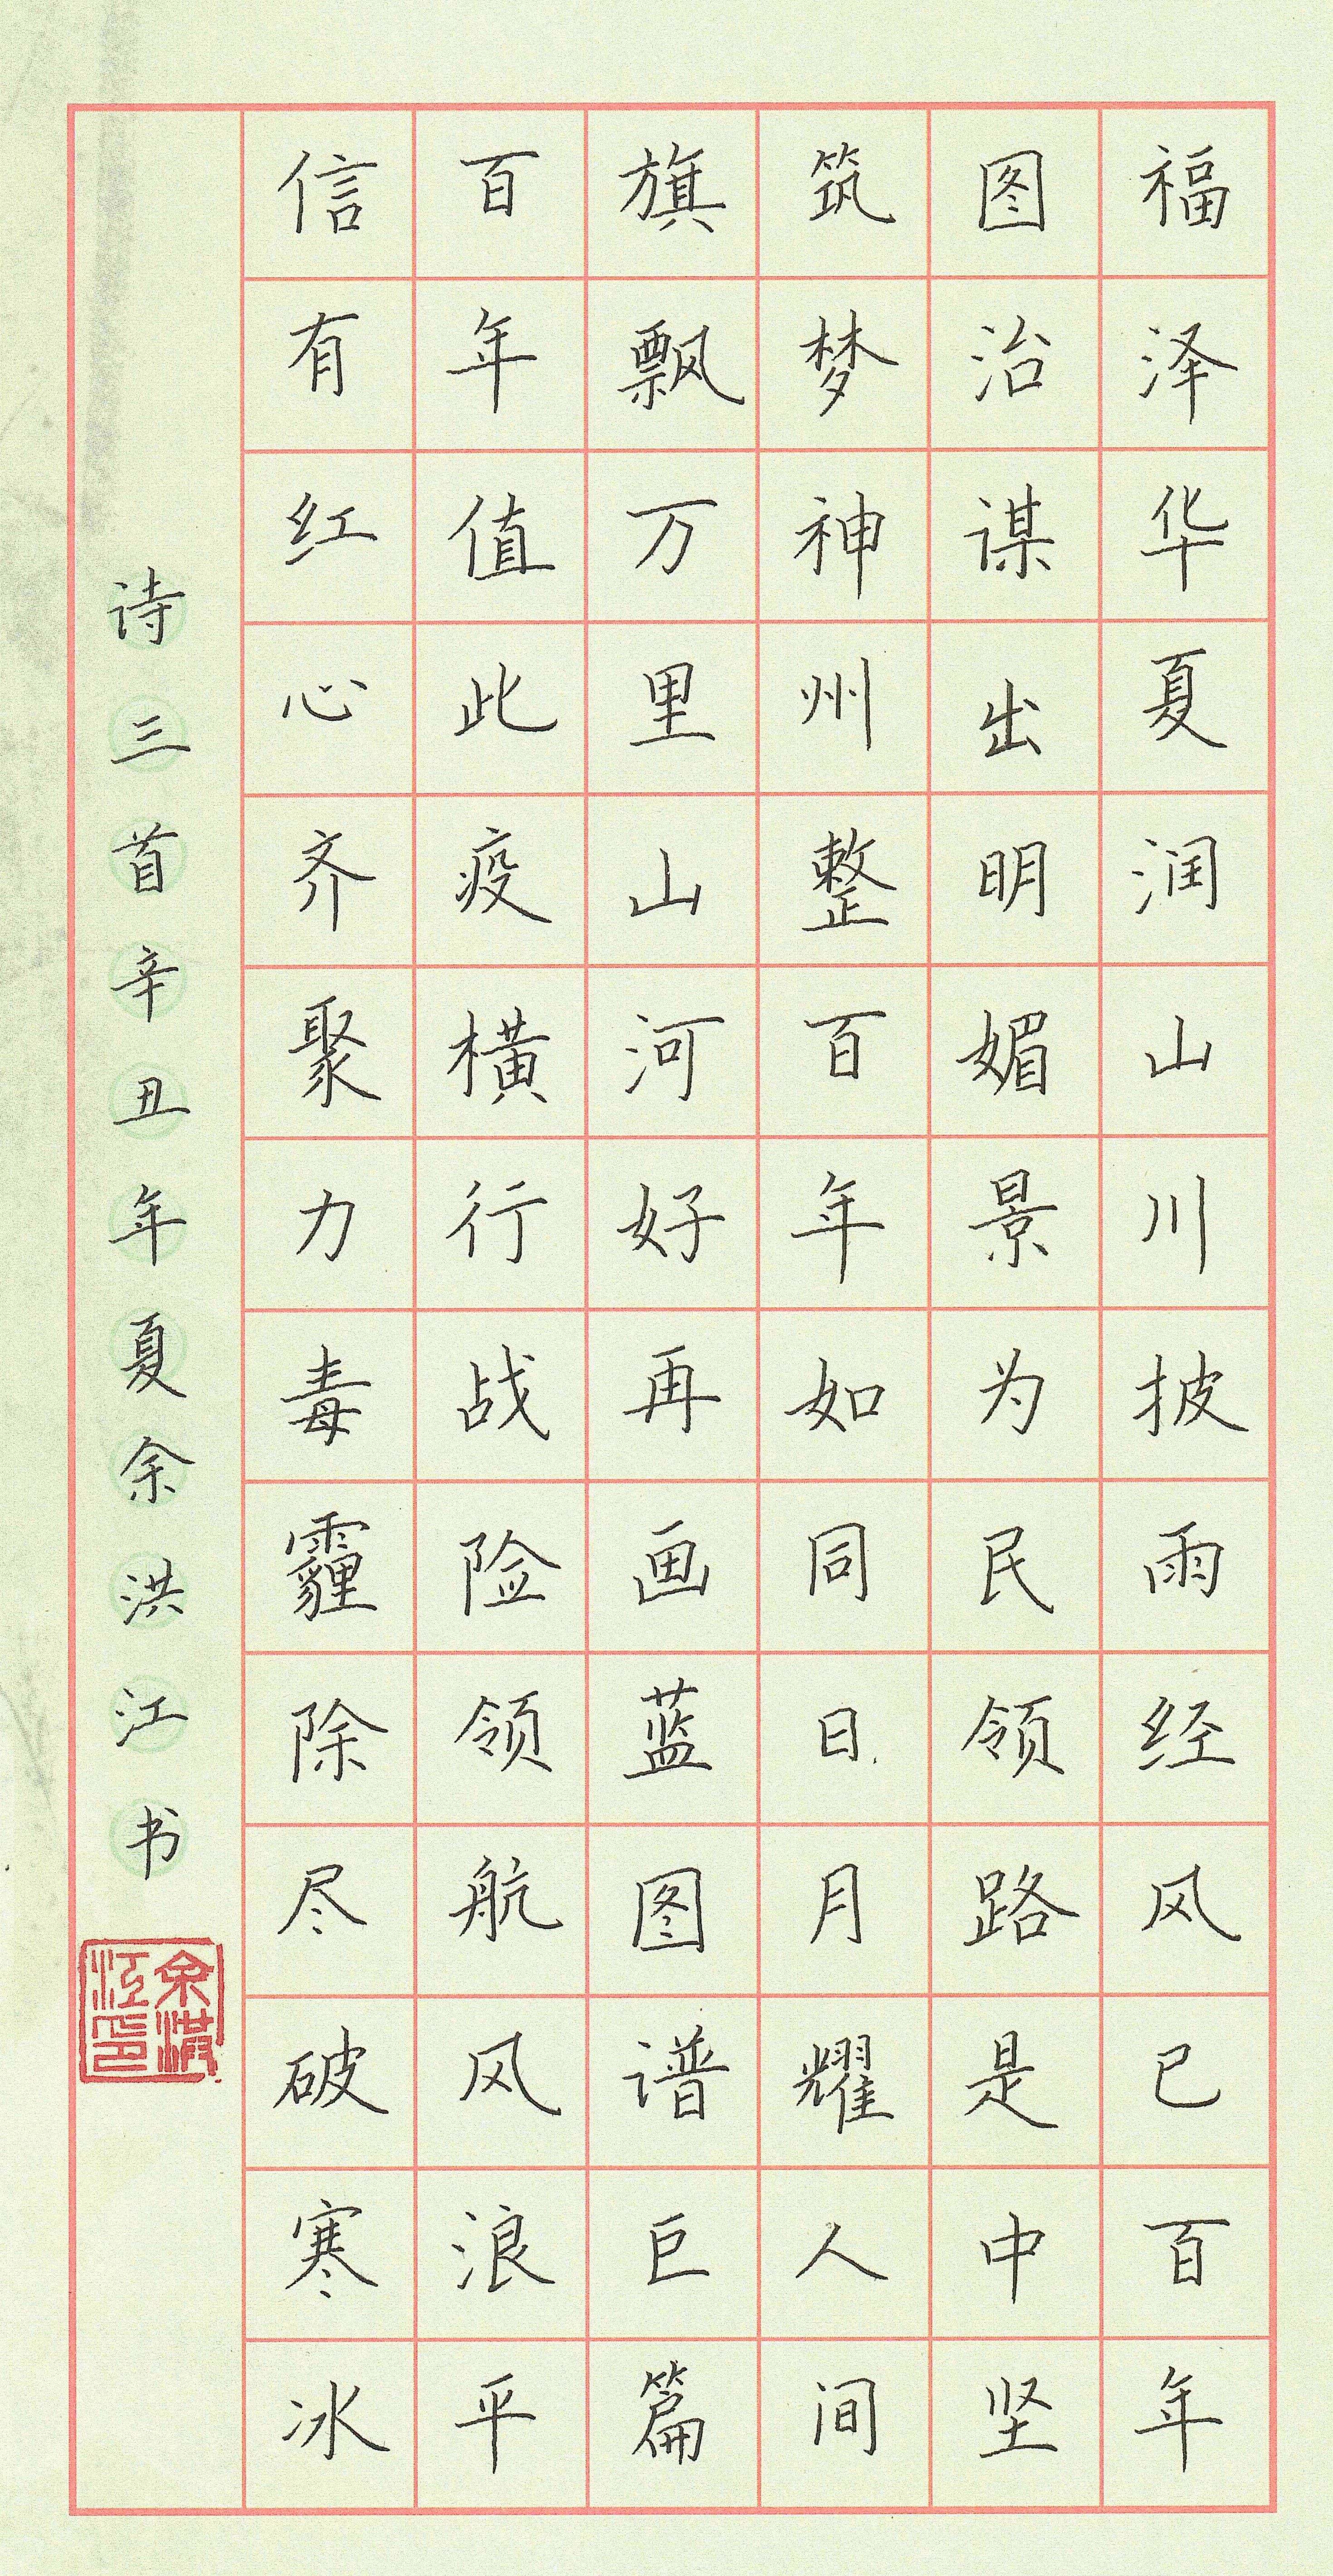 福泽华夏润山川披雨经风已百年
图治谋出明媚景为民领路是中坚
筑梦神州整百年如同日月耀人间
旗飘万里山河好再画蓝图谱巨篇
百年值此疫横行战险领航风浪平
信有红心齐聚力毒霾除尽破寒冰
诗三首辛丑年夏余洪江书
余洪江印